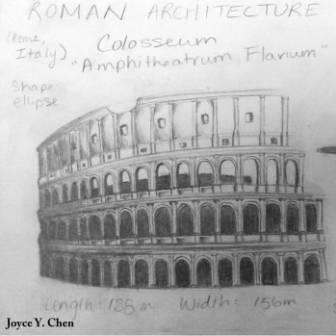 ROMAN ARCHITECTURE
(Rome,
Italy)
Colosseum
"Amphitheatrum Flavium"
Shape:
ellipse
Length: 188 m Width: 156m
Joyce Y. Chen